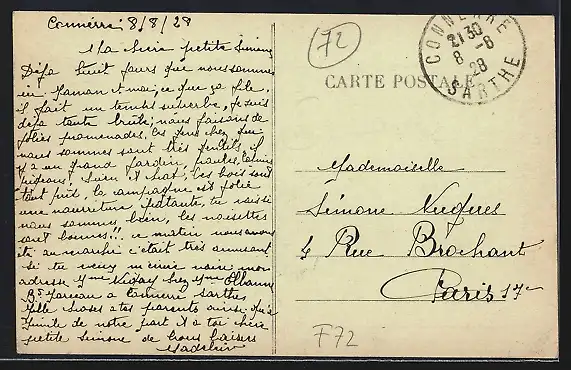 Connerré 8/8/28
Ma chère petite Simone
Déjà huit jours que nous sommes
ici Maman et moi, ce que ça file,
il fait un temps superbe, je suis
déjà toute brûlée, nous faisons de
jolies promenades, les gens chez qui
nous sommes sont très gentils, il
y a un grand jardin, poules, lapins
pigeons, chien et chat, les bois sont
tout près la campagne est jolie
une nourriture épatante, tu vois si
nous sommes bien, les noisettes
sont bonnes!! ce matin nous avons
été au marché c'était très amusant
Si tu veux m'écrire voici mon
adresse Mme chez Mme
à Connerré Sarthe
Mille choses à tes parents ainsi qu'à
de notre part et à toi chère
petite Simone de bons baisers
72
CARTE POSTALE
CONNERRE
21 30
8 -8
28
SARTHE
Mademoiselle
Simone
4 Rue Brochant
Paris 17e
F72